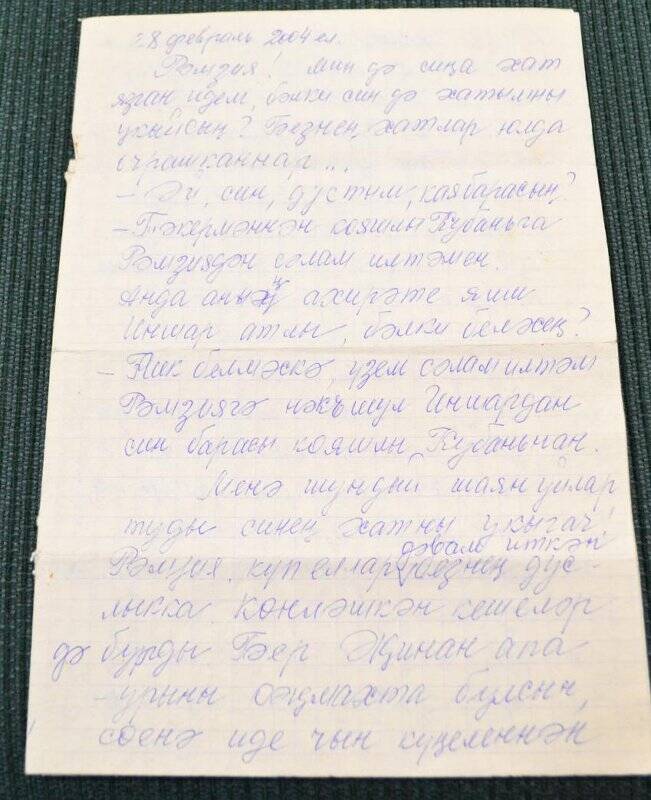 28 февраль 2004 ел.
Рәмзия! Мин дә сиңа хат
язган идем, бәлки син дә хатымны
укыйсың? Безнең хатлар юлда
очрашканнар...
- Әй, син, дустым, кая барасың?
- Бәкермәннән кояшлы Кубаньга
Рәмзиядән сәлам илтәмен.
Анда аның ахирәте яши
Иншар атлы, бәлки беләсең?
- Ник белмәскә, үзем сәлам илтәм
Рәмзиягә нәкъ шул Иншардан
син барасы кояшлы Кубаньнан.
Менә шундый шаян уйлар
туды синең хатны укыгач!
Рәмзия, күп еллар дәвам иткән безнең дус-
лыкка көнләшкән кешеләр
дә булды. Бәер Җинан апа
- урыны оҗмахта булсын,
сөенә иде чын күңеленнән